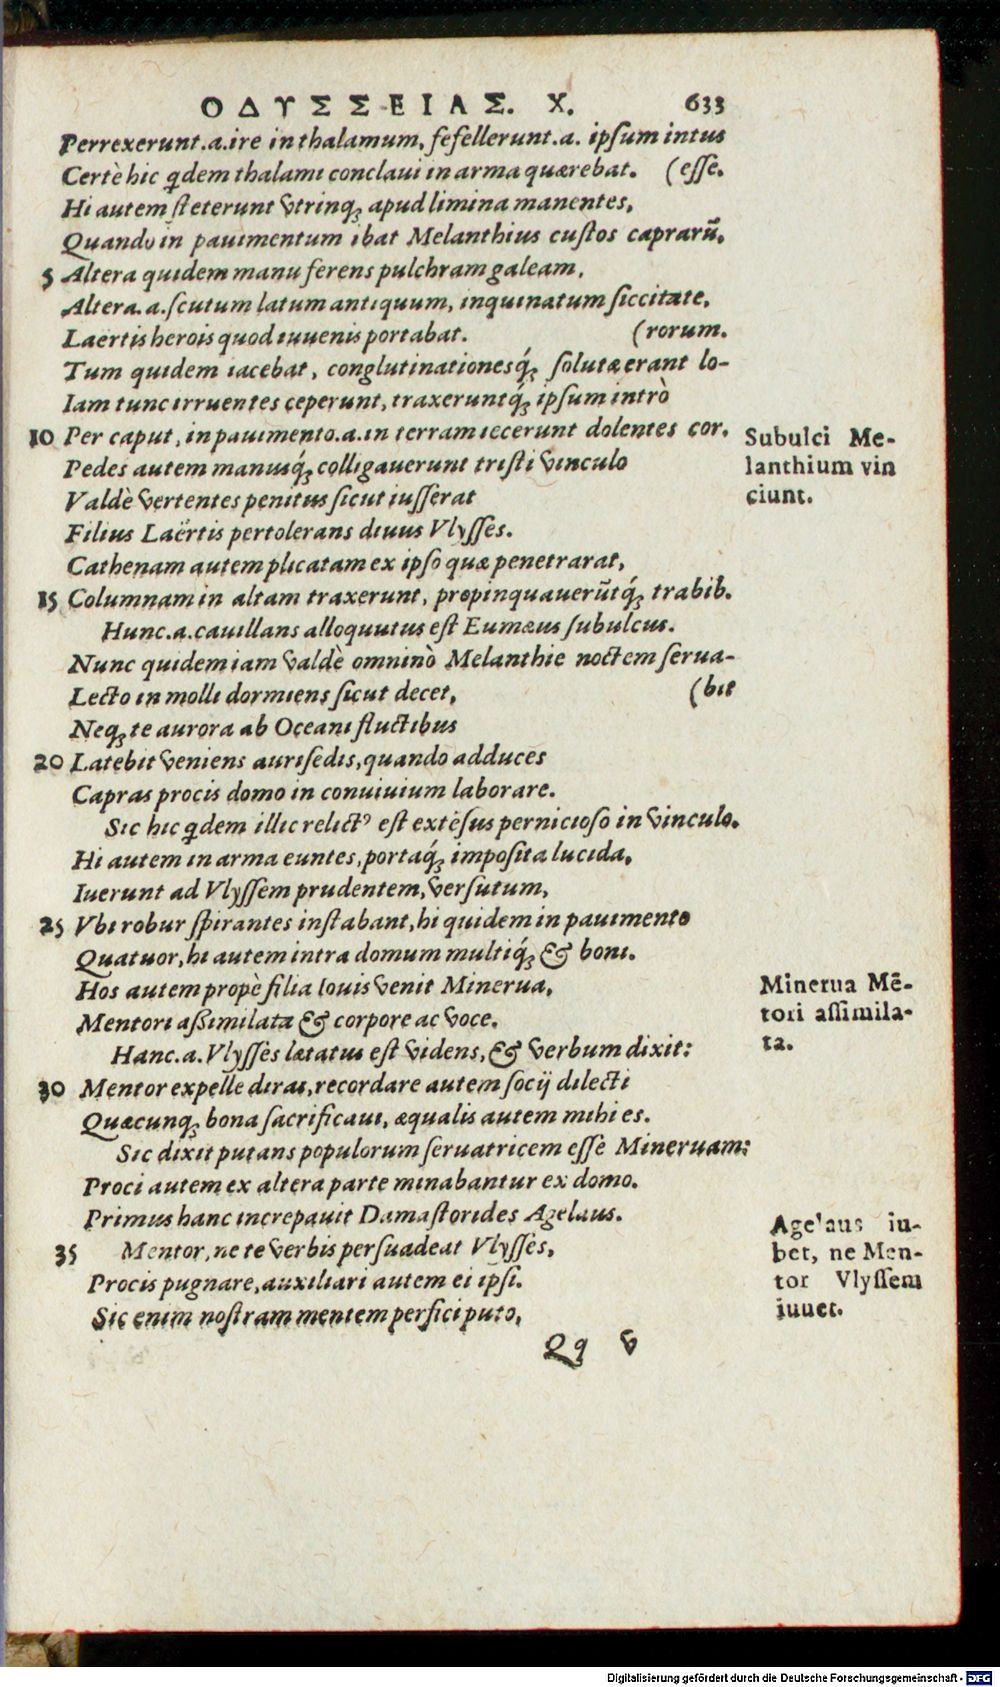 ΟΔΥΣΣΕΙΑΣ. Χ. 633
Perrexerunt.a.ire in thalamum, fefellerunt.a. ipsum intus
Certè hic qdem thalami conclaui in arma quærebat. (esse.
Hi autem steterunt vtrinq; apud limina manentes,
Quando in pauimentum ibat Melanthius custos caprarũ,
5 Altera quidem manu ferens pulchram galeam,
Altera.a.scutum latum antiquum, inquinatum siccitate,
Laertis herois quod iuuenis portabat. (rorum.
Tum quidem iacebat, conglutinationesq́; solutæ erant lo-
Iam tunc irruentes ceperunt, traxeruntq́; ipsum intrò
10 Per caput, in pauimento.a.in terram iecerunt dolentes cor.
Pedes autem manusq́; colligauerunt tristi vinculo
Valdè vertentes penitus sicut iusserat
Filius Laërtis pertolerans diuus Vlysses.
Cathenam autem plicatam ex ipso quæ penetrarat,
15 Columnam in altam traxerunt, propinquauerũtq́; trabib.
Hunc.a.cauillans alloquutus est Eumæus subulcus.
Nunc quidem iam valdè omninò Melanthie noctem serua-
Lecto in molli dormiens sicut decet, (bis
Neq; te aurora ab Oceani fluctibus
20 Latebit veniens aurisedis, quando adduces
Capras procis domo in conuiuium laborare.
Sic hic qdem illic relictꝰ est extēsus pernicioso in vinculo.
Hi autem in arma euntes, portaq́; imposita lucida,
Iuerunt ad Vlyssem prudentem, versutum,
25 Vbi robur spirantes instabant, hi quidem in pauimento
Quatuor, hi autem intra domum multiq́; & boni.
Hos autem propè filia Iouis venit Minerua,
Mentori assimilata & corpore ac voce.
Hanc.a.Vlysses lætatus est videns, & verbum dixit:
30 Mentor expelle diras, recordare autem socij dilecti
Quæcunq; bona sacrificaui, æqualis autem mihi es.
Sic dixit putans populorum seruatricem esse Mineruam:
Proci autem ex altera parte minabantur ex domo.
Primus hanc increpauit Damastorides Agelaus.
35 Mentor, ne te verbis persuadeat Vlysses,
Procis pugnare, auxiliari autem ei ipsi.
Sic enim nostram mentem perfici puto,
Qq v
Subulci Me-
lanthium vin
ciunt.
Minerua Mē-
tori assimila-
ta.
Agelaus iu-
bet, ne Men-
tor Vlyssem
iuuet.
Digitalisierung gefördert durch die Deutsche Forschungsgemeinschaft - DFG